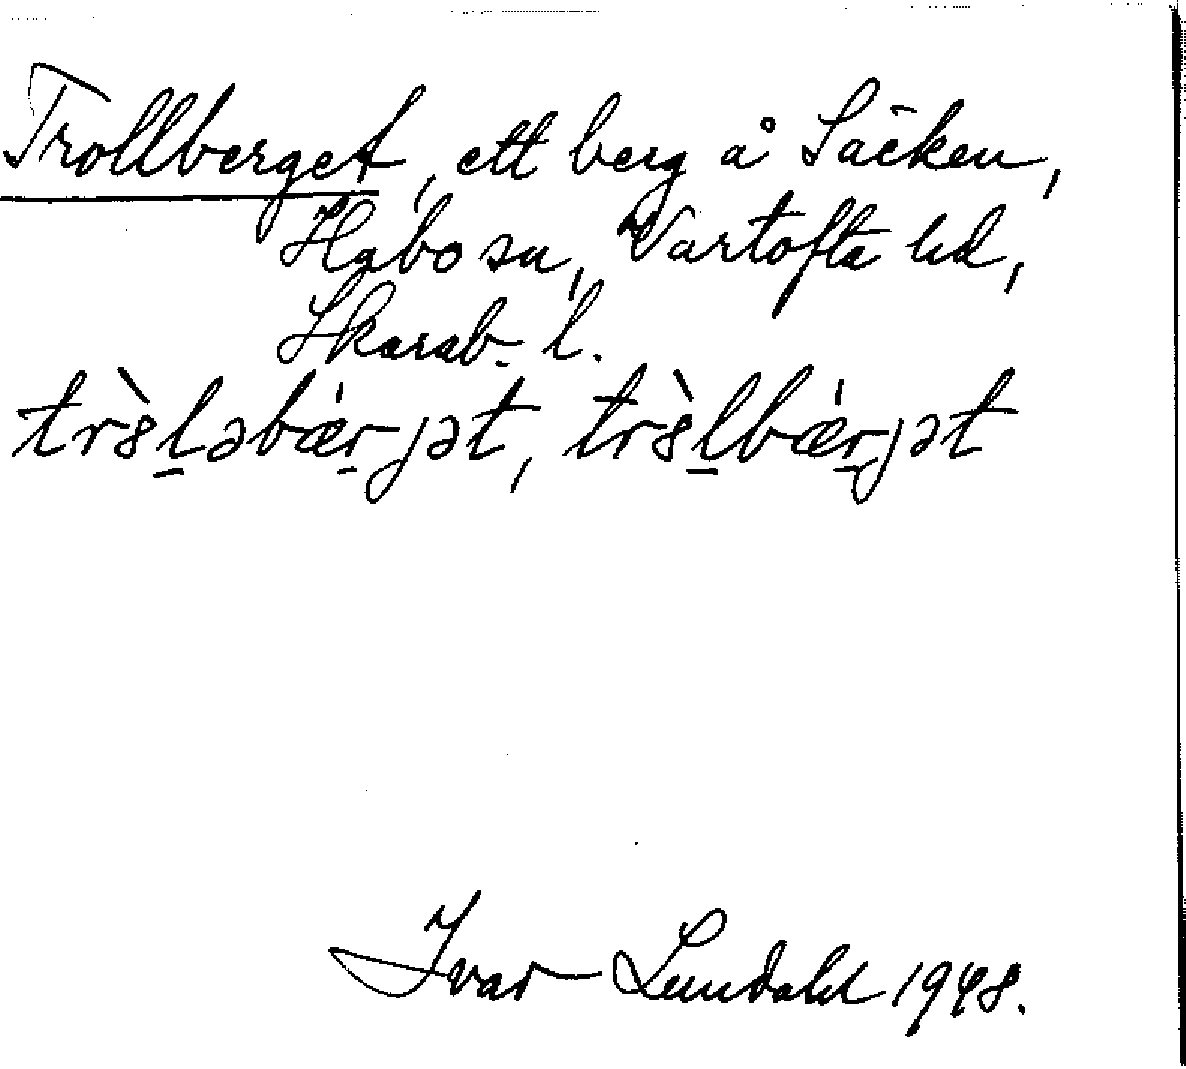 Trollberget, ett berg å Säcken,
Habo sn, Vartofta hd,
Skarab. l.
trò̀l̠əbǽr̠jət, trò̀l̠bǽr̠jət
Ivar Lundahl 1948.